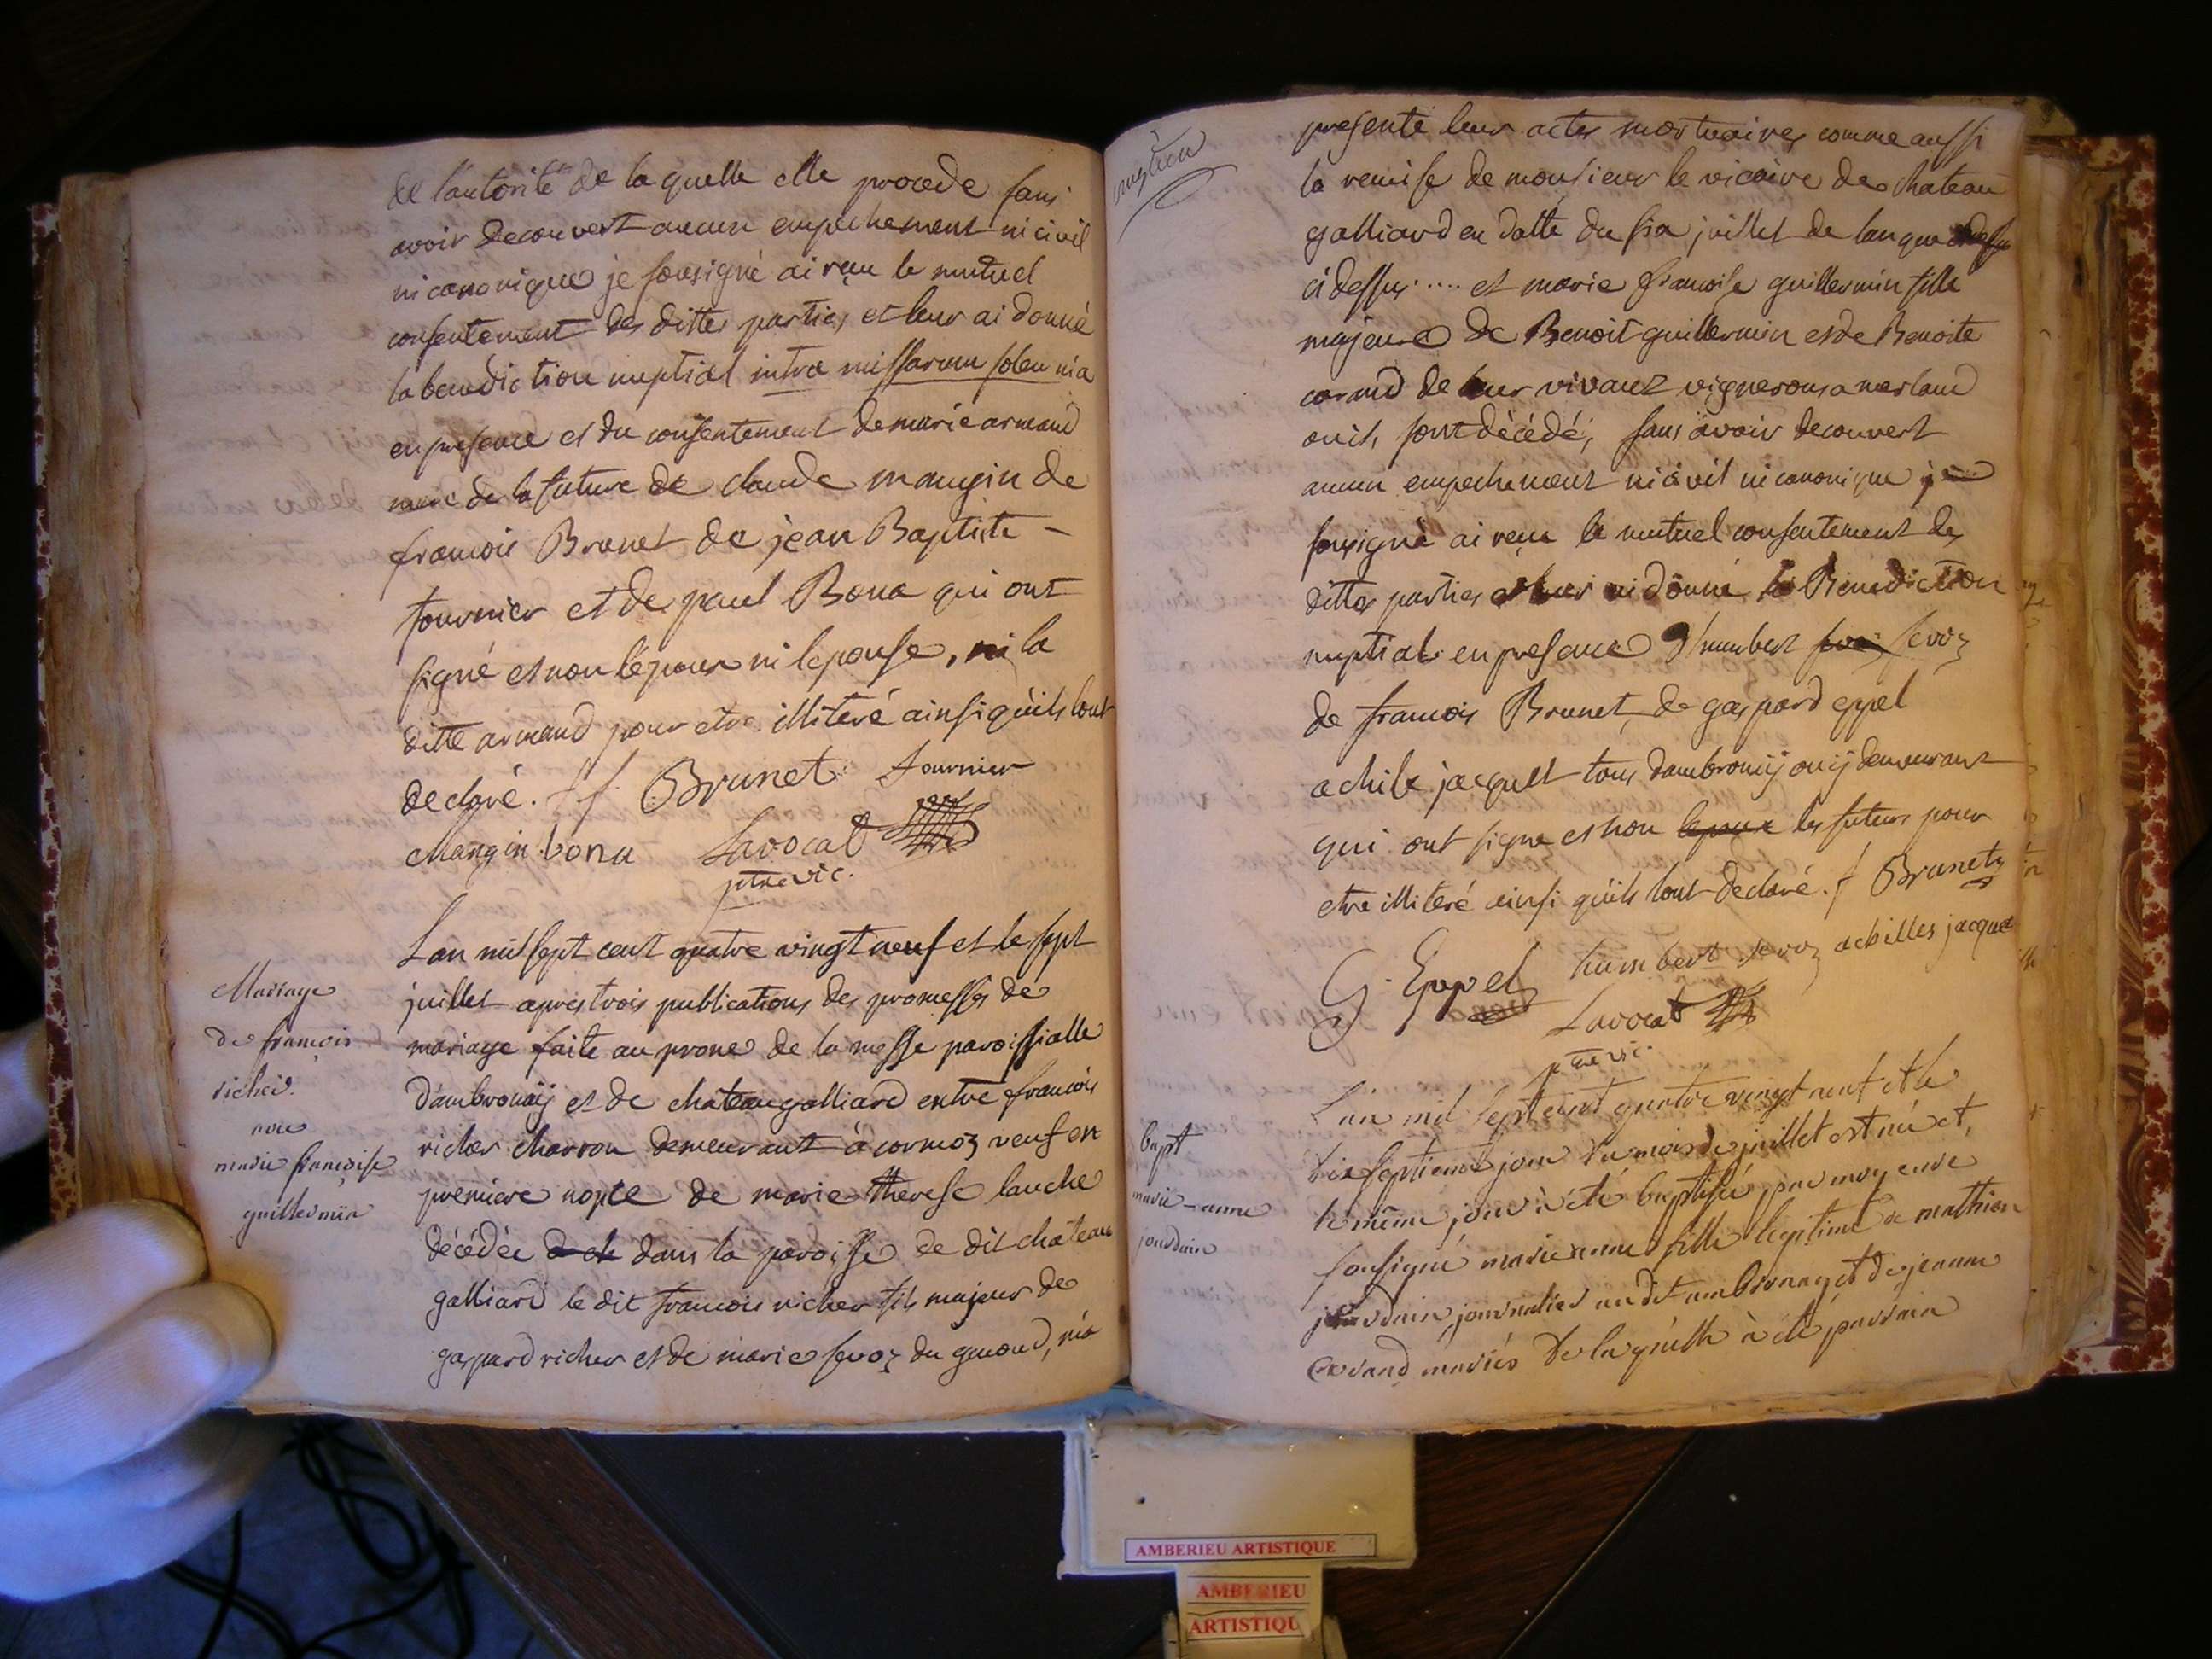 de l'autorité de la quelle elle procede sans
avoir decouvert aucun empechement ni civil
ni canonique je sousigné ai reçu le mutuel
consentement des dittes parties et leur ai donné
la benediction nuptial intra missarum solemnia
en presence et du consentement de marie armand
mere de la future de claude mangin de
francois Brunet de jean Baptiste -
fournier et de paul Bona qui ont
signé et non l'epoux ni lepouse, ni la
ditte armand pour etre illiteré ainsi qu'ils lont
declaré. f Brunet fournier
Mangin bona Lavocat
ptre vic.
Mariage
de francois
richer
avec
marie francoise
guillermin
Lan mil sept cent quatre vingt neuf et le sept
juillet apres trois publications des promesses de
mariage faite au prone de la messe paroissialle
d'ambronaÿ et de chateaugalliard entre francois
richer charron demeurant à cormoz veuf en
premiere nopce de marie therese lauche
décédée dans la paroisse de dit chateau
galliard le dit francois richer fils majeur de
gaspard richer et de marie savoz du genoud, m'a
presenté leur actes mortuaires comme aussi
la remise de monsieur le vicaire de chateau
galliard en datte du six juillet de lan que
ci dessus .... et marie francoise guillermin fille
majeure de Benoit guillermin et de Benoite
carand de leur vivant vignerons a merland
ou ils sont décédés, sans avoir decouvert
aucun empechement ni civil ni canonique je
sousigné ai reçu le mutuel consentement des
dittes parties et leur ai donné la Benediction
nuptial en presence d'humbert servoz
de francois Brunet, de gaspard eppel
achile jacquet tous dambronaÿ ou ÿ demeurant
qui ont signe et non lepoux les futurs pour
etre illiteré ainsi qu'ils lont declaré. f Brunet
G. Eppel humbert servoz achilles jacque
Lavocat
ptre vic.
bapt
marie-anne
jourdain
L'an mil sept cent quatre vingt neuf et le
dix septieme jour du mois de juillet est née et
le même jour à été baptisée par moy curé
sousigné marie anne fille legitime de mathieu
jourdain, journalier au dit ambronay et de jeanne
mariés de laquelle à été parrain
AMBERIEU ARTISTIQUE
AMBERIEU
ARTISTIQU